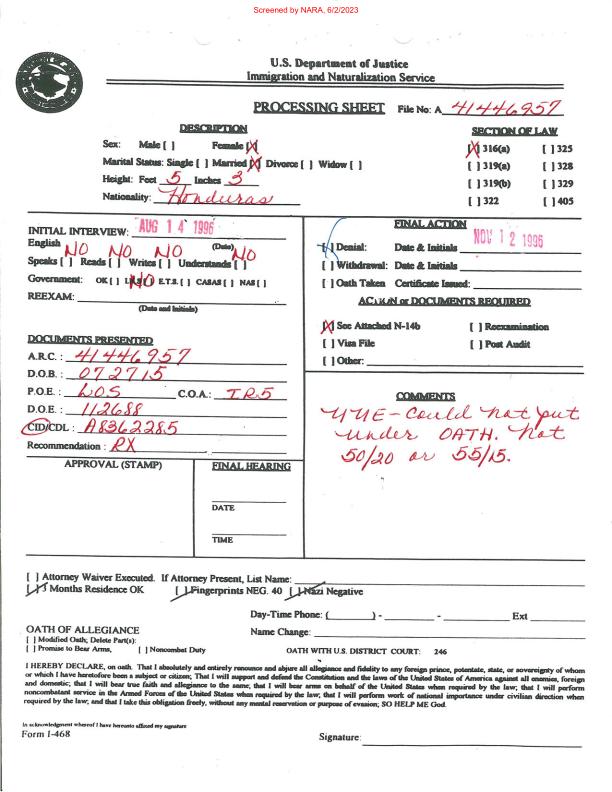 Screened by NARA, 6/2/2023
U.S. Department of Justice
Immigration and Naturalization Service
PROCESSING SHEET File No: A 41446957
DESCRIPTION
SECTION OF LAW
Sex: Male [ ] Female [X]
[X] 316(a) [ ] 325
Marital Status: Single [ ] Married [X] Divorce [ ] Widow [ ]
[ ] 319(a) [ ] 328
Height: Feet 5 Inches 3
[ ] 319(b) [ ] 329
Nationality: Honduras
[ ] 322 [ ] 405
INITIAL INTERVIEW: AUG 14 1996
(Date)
English
NO NO NO NO
Speaks [ ] Reads [ ] Writes [ ] Understands [ ]
Government: OK [ ] NO E.T.S. [ ] CASAS [ ] NAS [ ]
REEXAM:
(Date and Initials)
FINAL ACTION
[ ] Denial: Date & Initials NOV 12 1996
[ ] Withdrawal: Date & Initials
[ ] Oath Taken Certificate Issued:
ACTION or DOCUMENTS REQUIRED
[X] See Attached N-14b [ ] Reexamination
[ ] Visa File [ ] Post Audit
[ ] Other:
DOCUMENTS PRESENTED
A.R.C. : 41446957
D.O.B. : 072715
P.O.E. : LOS C.O.A. : IR5
D.O.E. : 112688
CID/CDL : A8362285
Recommendation : RX
COMMENTS
could not put
under OATH. not
50/20 or 55/15.
APPROVAL (STAMP)
FINAL HEARING
DATE
TIME
[ ] Attorney Waiver Executed. If Attorney Present, List Name:
[✓] 3 Months Residence OK [✓] Fingerprints NEG. 40 [✓] Nazi Negative
Day-Time Phone: ( ) - - Ext
OATH OF ALLEGIANCE
Name Change:
[ ] Modified Oath; Delete Part(s):
[ ] Promise to Bear Arms, [ ] Noncombat Duty
OATH WITH U.S. DISTRICT COURT: 246
I HEREBY DECLARE, on oath. That I absolutely and entirely renounce and abjure all allegiance and fidelity to any foreign prince, potentate, state, or sovereignty of whom
or which I have heretofore been a subject or citizen; That I will support and defend the Constitution and the laws of the United States of America against all enemies, foreign
and domestic; that I will bear true faith and allegiance to the same; that I will bear arms on behalf of the United States when required by the law; that I will perform
noncombatant service in the Armed Forces of the United States when required by the law; that I will perform work of national importance under civilian direction when
required by the law; and that I take this obligation freely, without any mental reservation or purpose of evasion; SO HELP ME God.
In acknowledgment whereof I have hereunto affixed my signature
Form I-468
Signature: